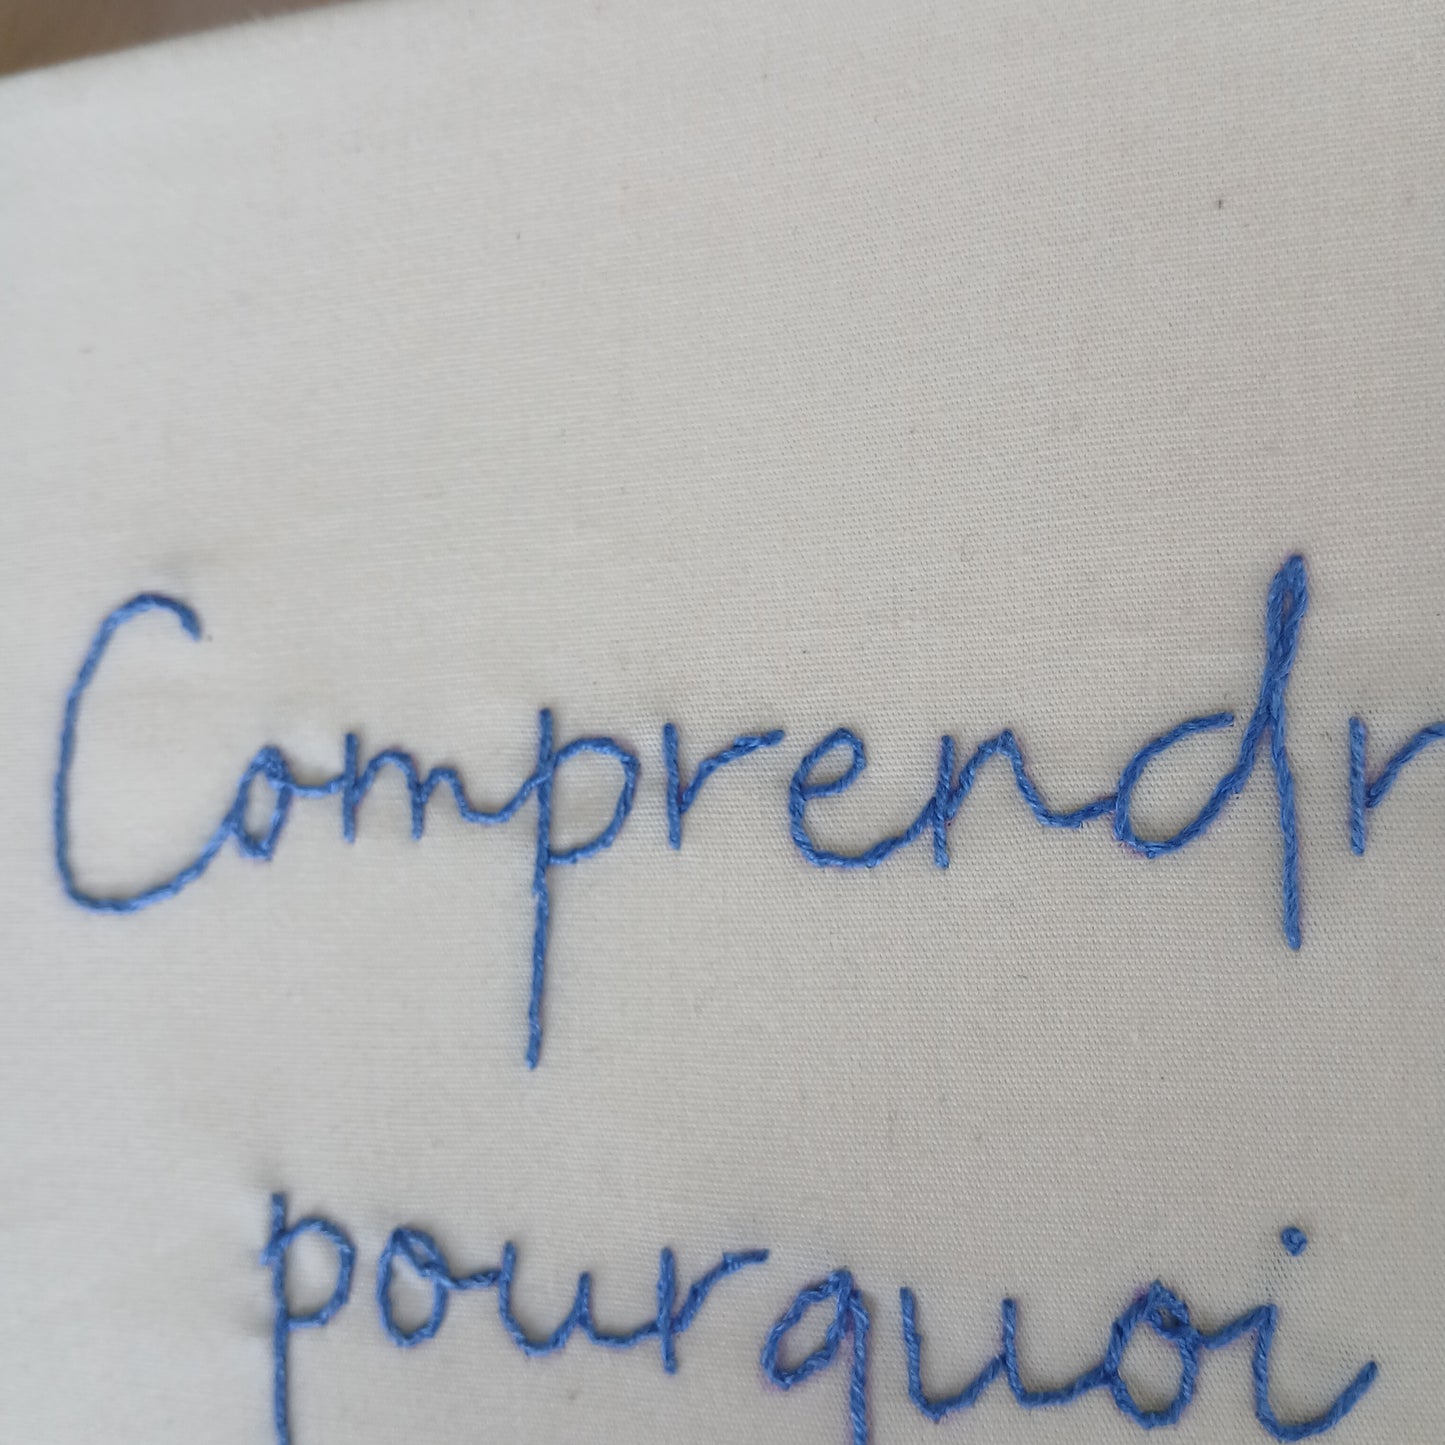 Comprendr
pourquoi